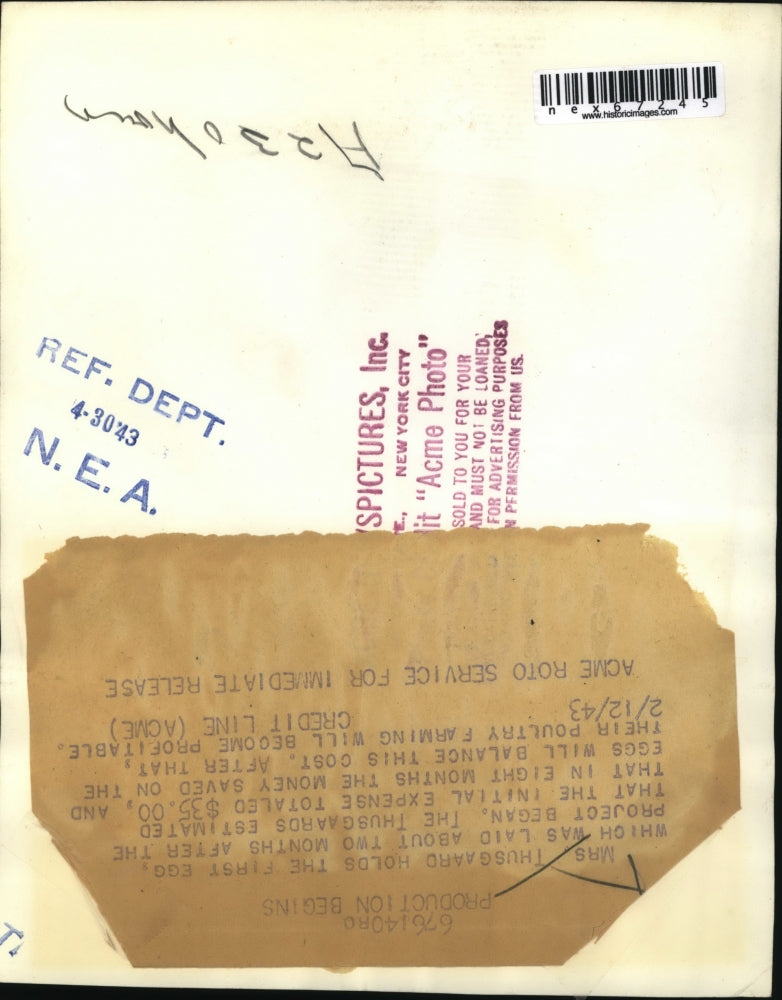 n e x 6 7 2 4 5
www.historicimages.com
REF. DEPT.
4-30'43
N. E. A.
SPICTURES, Inc.
NEW YORK CITY
it "Acme Photo"
SOLD TO YOU FOR YOUR
AND MUST NOT BE LOANED,
FOR ADVERTISING PURPOSES
N PERMISSION FROM US.
676140RO
PRODUCTION BEGINS
MRS. THUSGAARD HOLDS THE FIRST EGG,
WHICH WAS LAID ABOUT TWO MONTHS AFTER THE
PROJECT BEGAN. THE THUSGAARDS ESTIMATED
THAT THE INITIAL EXPENSE TOTALED $35.00, AND
THAT IN EIGHT MONTHS THE MONEY SAVED ON THE
EGGS WILL BALANCE THIS COST. AFTER THAT,
THEIR POULTRY FARMING WILL BECOME PROFITABLE.
2/12/43 CREDIT LINE (ACME)
ACME ROTO SERVICE FOR IMMEDIATE RELEASE